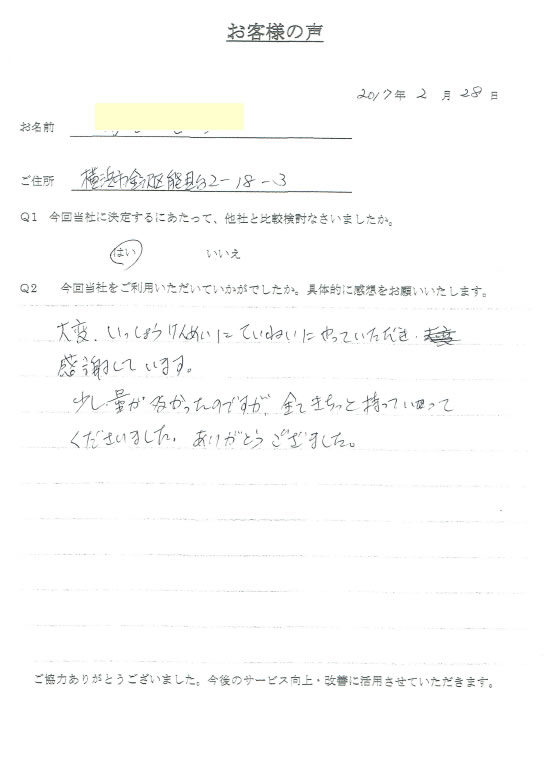 お客様の声
2017年 2 月 28 日
お名前
ご住所 横浜市金沢区能見台2-18-3
Q1 今回当社に決定するにあたって、他社と比較検討なさいましたか。
はい いいえ
Q2 今回当社をご利用いただいていかがでしたか。具体的に感想をお願いいたします。
大変、いっしょうけんめいにていねいにやっていただき、
感謝しています。
少し量が多かったのですが、全てきちっと持っていって
くださいました。ありがとうございました。
ご協力ありがとうございました。今後のサービス向上・改善に活用させていただきます。